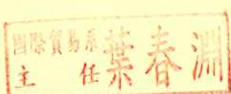 國際貿易系
主任
葉春淵